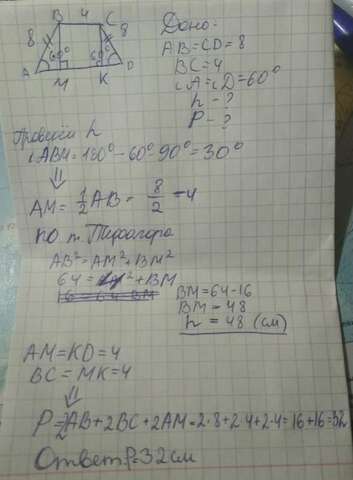 B 4 C
8 8
60° 60°
A M K D
Дано:
AB=CD=8
BC=4
∠A=∠D=60°
h - ?
P - ?
Провести h
∠ABM=180°-60°-90°=30°
⇓
AM=1/2AB=8/2=4
по т. Пифагора
AB²=AM²+BM²
64=4²+BM
16=64-BM
BM=64-16
BM=48
h=48 (см)
AM=KD=4
BC=MK=4
⇓
P=2AB+2BC+2AM=2·8+2·4+2·4=16+16=32
Ответ: P=32см